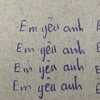 Em yêu anh
Em yêu anh
Em yêu anh
Em yêu anh